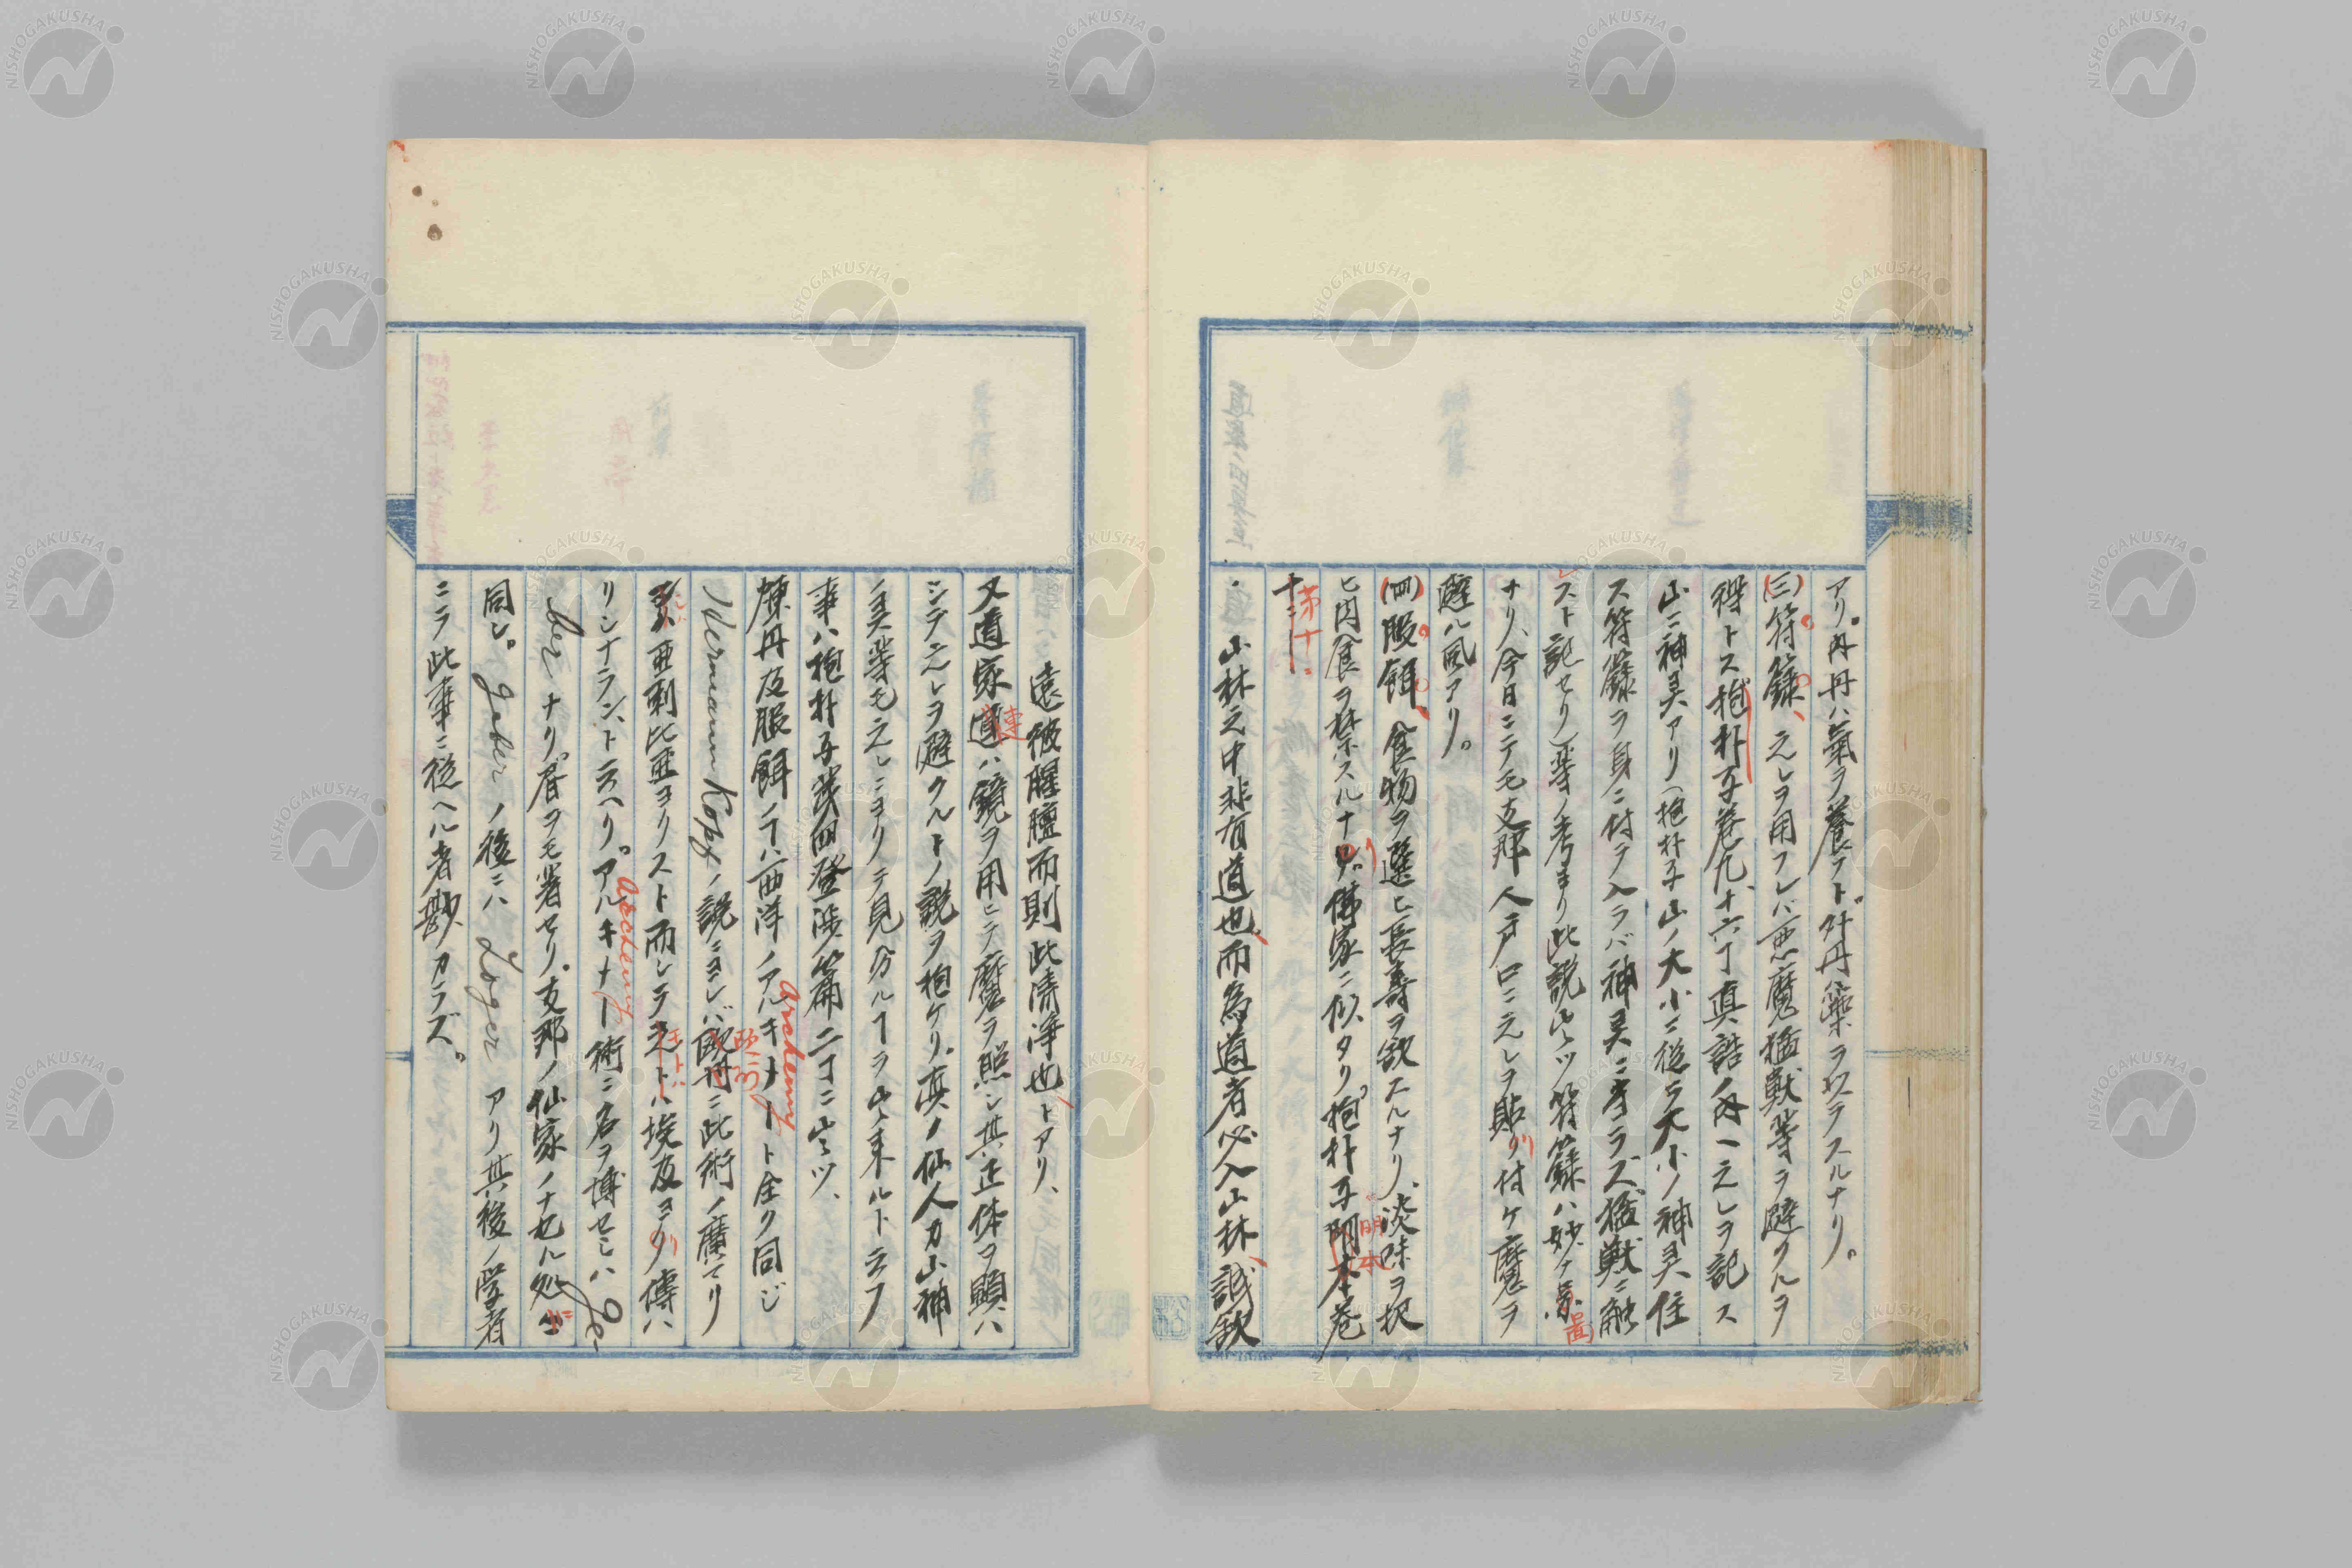 アリ。内丹ハ氣ヲ養フト。外丹ハ藥ヲ以テスルナリ。
(三)符籙、之レヲ用フレバ悪魔猛獣等ヲ避クルヲ
得トス抱朴子卷九、十六丁真誥ノ内ニ之レヲ記ス
山ニ神灵アリ(抱朴子山ノ大小ニ從テ大小ノ神灵住
ス符籙ヲ身ニ付テ入ラバ神灵ニ害ラズ猛獣ニ触
レスト記セリ)等ノ考ヨリ此説出ヅ符籙ハ妙ナ
ナリ、今日ニテモ支那人戸口ニ之レヲ貼リ付ケ魔ヲ
避ル風アリ。
(四)服餌、食物ヲ選ヒ長寿ヲ欲スルナリ、淡味ヲ択
ヒ肉食ヲ禁スルナリ。佛家ニ似タリ。抱朴子明本卷
第十ニ
山林之中非有道也、而為道者必入山林、誠欲
遠彼腥膻而則此清浄也、トアリ、
又道家連ハ鏡ヲ用ヒテ魔ヲ照シ其正体ヲ顕ハ
シテ之レヲ避クルトノ説ヲ抱ケリ。真ノ仙人カ山神
ノ灵等モ之レニヨリテ見分ルヿヲ出来ルト云フ
事ハ抱朴子巻四登渉篇二丁ニ出ヅ、
煉丹及服餌ノヿハ西洋ノアルキナートト全ク同ジ
Archemy
Hermann Kopfノ説ニヨレバ欧洲ニ此術ノ廣マリ
シハ亜剌比亜ヨリスト而シテモトハ埃及ヨリ傳ハ
リシナラント云ヘリ。アルキナート術ニ名ヲ博セシハGe
Archemy
berナリ。屠ヲモ著セリ。支那ノ仙家ノナセル処ニ
同シ。Geberノ後ニハLogerアリ其後ノ学者
ニテ此事ニ從ヘル者尠カラズ。
NISHOGAKUSHA